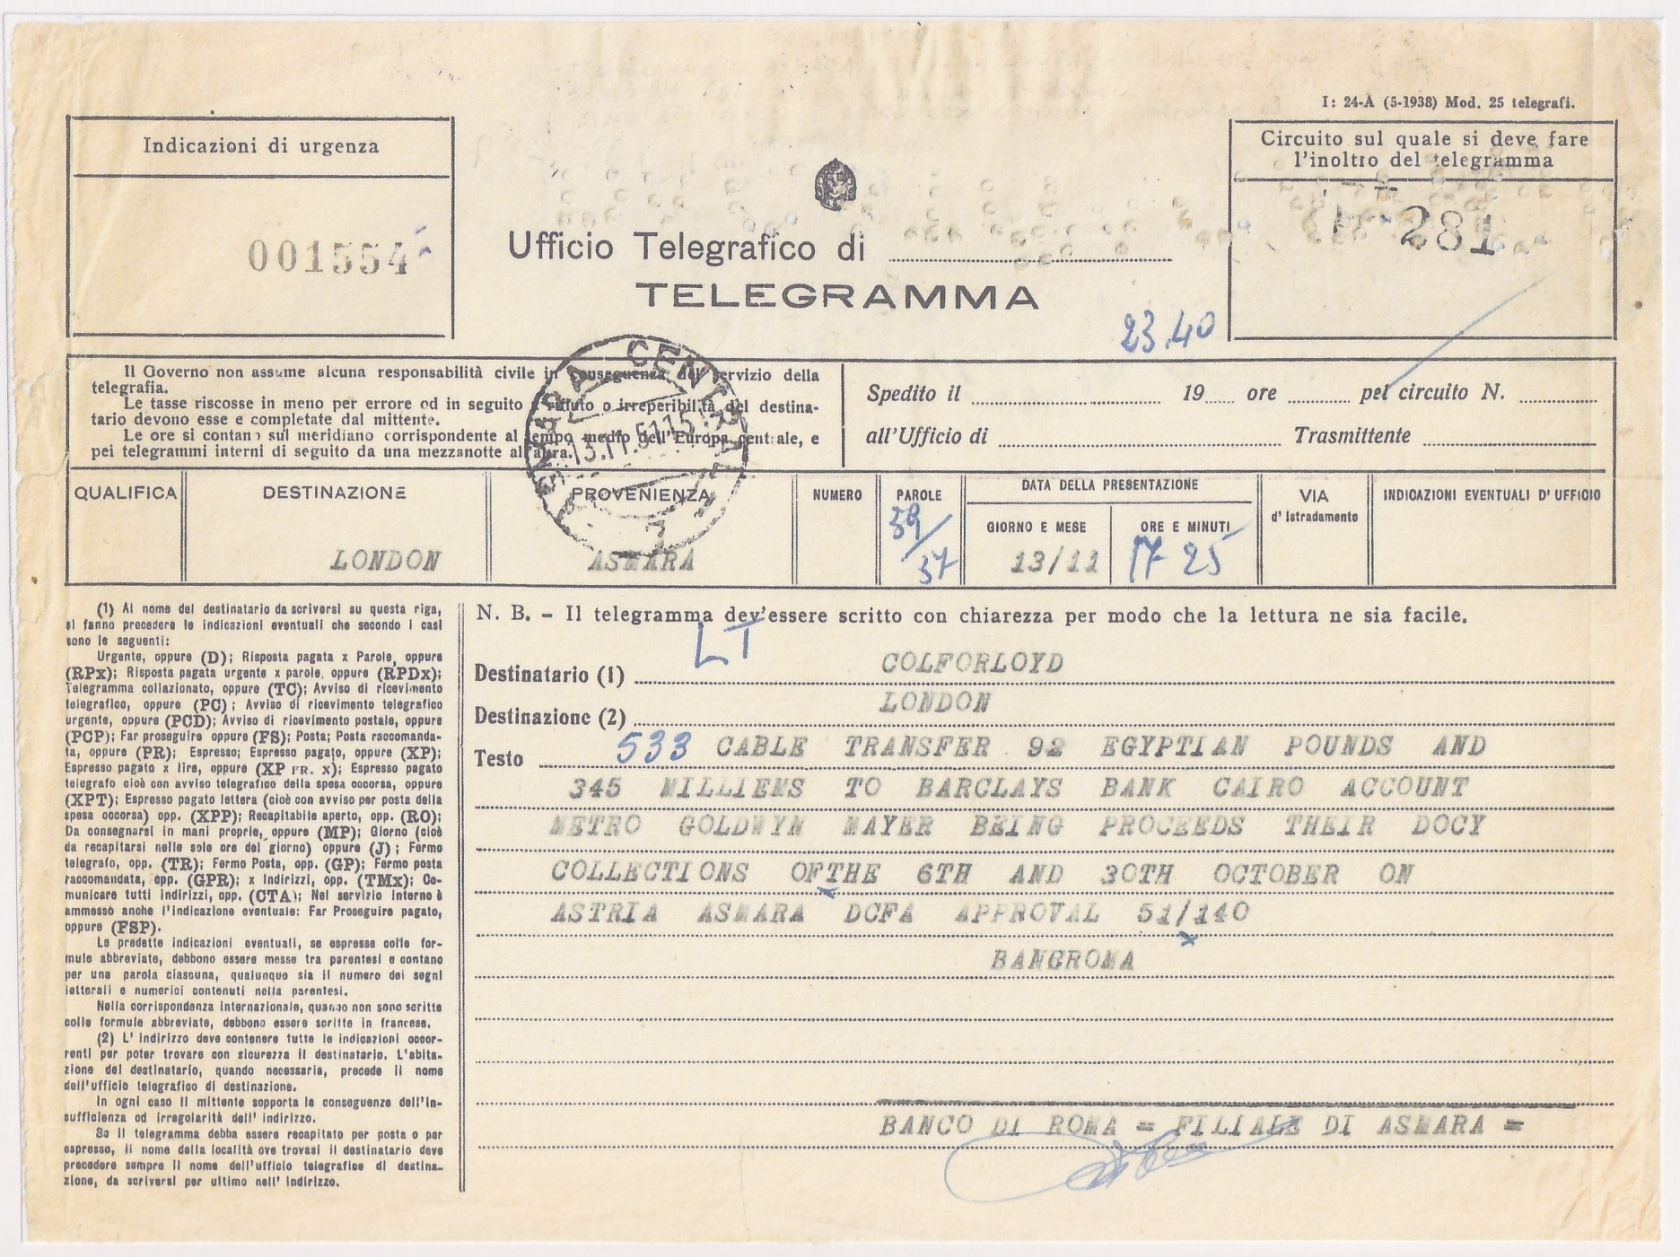 I: 24-A (5-1938) Mod. 25 telegrafi.
Indicazioni di urgenza
001554
Ufficio Telegrafico di
TELEGRAMMA
23.40
Circuito sul quale si deve fare
l'inoltro del telegramma
281
Il Governo non assume alcuna responsabilità civile in conseguenza del servizio della
telegrafia.
Le tasse riscosse in meno per errore od in seguito a rifiuto o irreperibilità del destina-
tario devono esse e completate dal mittente.
Le ore si contano sul meridiano corrispondente al tempo medio dell'Europa centrale, e
pei telegrammi interni di seguito da una mezzanotte all'altra.
ASMARA CENTRALE
13.11.51.15
Spedito il 19 ore pel circuito N.
all'Ufficio di Trasmittente
QUALIFICA
DESTINAZIONE
LONDON
PROVENIENZA
ASMARA
NUMERO
PAROLE
39/37
DATA DELLA PRESENTAZIONE
GIORNO E MESE
13/11
ORE E MINUTI
17 25
VIA
d'Istradamento
INDICAZIONI EVENTUALI D'UFFICIO
(1) Al nome del destinatario da scriversi su questa riga,
si fanno precedere le indicazioni eventuali che secondo i casi
sono le seguenti:
Urgente, oppure (D); Risposta pagata x Parole, oppure
(RPx); Risposta pagata urgente x parole, oppure (RPDx);
Telegramma collazionato, oppure (TC); Avviso di ricevimento
telegrafico, oppure (PC); Avviso di ricevimento telegrafico
urgente, oppure (PCD); Avviso di ricevimento postale, oppure
(PCP); Far proseguire oppure (FS); Posta; Posta raccomanda-
ta, oppure (PR); Espresso; Espresso pagato, oppure (XP);
Espresso pagato x lire, oppure (XP FR. x); Espresso pagato
telegrafo cioè con avviso telegrafico della spesa occorsa, oppure
(XPT); Espresso pagato lettera (cioè con avviso per posta della
spesa occorsa) opp. (XPP); Recapitabile aperto, opp. (RO);
Da consegnarsi in mani proprie, oppure (MP); Giorno (cioè
da recapitarsi nelle sole ore del giorno) oppure (J); Fermo
telegrafo, opp. (TR); Fermo Posta, opp. (GP); Fermo posta
raccomandata, opp. (GPR); x Indirizzi, opp. (TMx); Co-
municare tutti indirizzi, opp. (CTA); Nel servizio interno è
ammesso anche l'indicazione eventuale: Far Proseguire pagato,
oppure (FSP).
Le predette indicazioni eventuali, se espresse colle for-
mule abbreviate, debbono essere messe tra parentesi e contano
per una parola ciascuna, qualunque sia il numero dei segni
letterali e numerici contenuti nella parentesi.
Nella corrispondenza internazionale, quando non sono scritte
colle formule abbreviate, debbono essere scritte in francese.
(2) L'indirizzo deve contenere tutte le indicazioni occor-
renti per poter trovare con sicurezza il destinatario. L'abita-
zione del destinatario, quando necessaria, precede il nome
dell'ufficio telegrafico di destinazione.
In ogni caso il mittente sopporta le conseguenze dell'in-
sufficienza od irregolarità dell'indirizzo.
Se il telegramma debba essere recapitato per posta o per
espresso, il nome della località ove trovasi il destinatario deve
precedere sempre il nome dell'ufficio telegrafico di destina-
zione, da scriversi per ultimo nell'indirizzo.
N. B. - Il telegramma dev'essere scritto con chiarezza per modo che la lettura ne sia facile.
LT
Destinatario (1) COLFORLOYD
Destinazione (2) LONDON
Testo 533 CABLE TRANSFER 92 EGYPTIAN POUNDS AND
345 MILLIEMS TO BARCLAYS BANK CAIRO ACCOUNT
METRO GOLDWYN MAYER BEING PROCEEDS THEIR DOCY
COLLECTIONS OFTHE 6TH AND 30TH OCTOBER ON
ASTRIA ASMARA DCFA APPROVAL 51/140
BANCROMA
BANCO DI ROMA = FILIALE DI ASMARA =